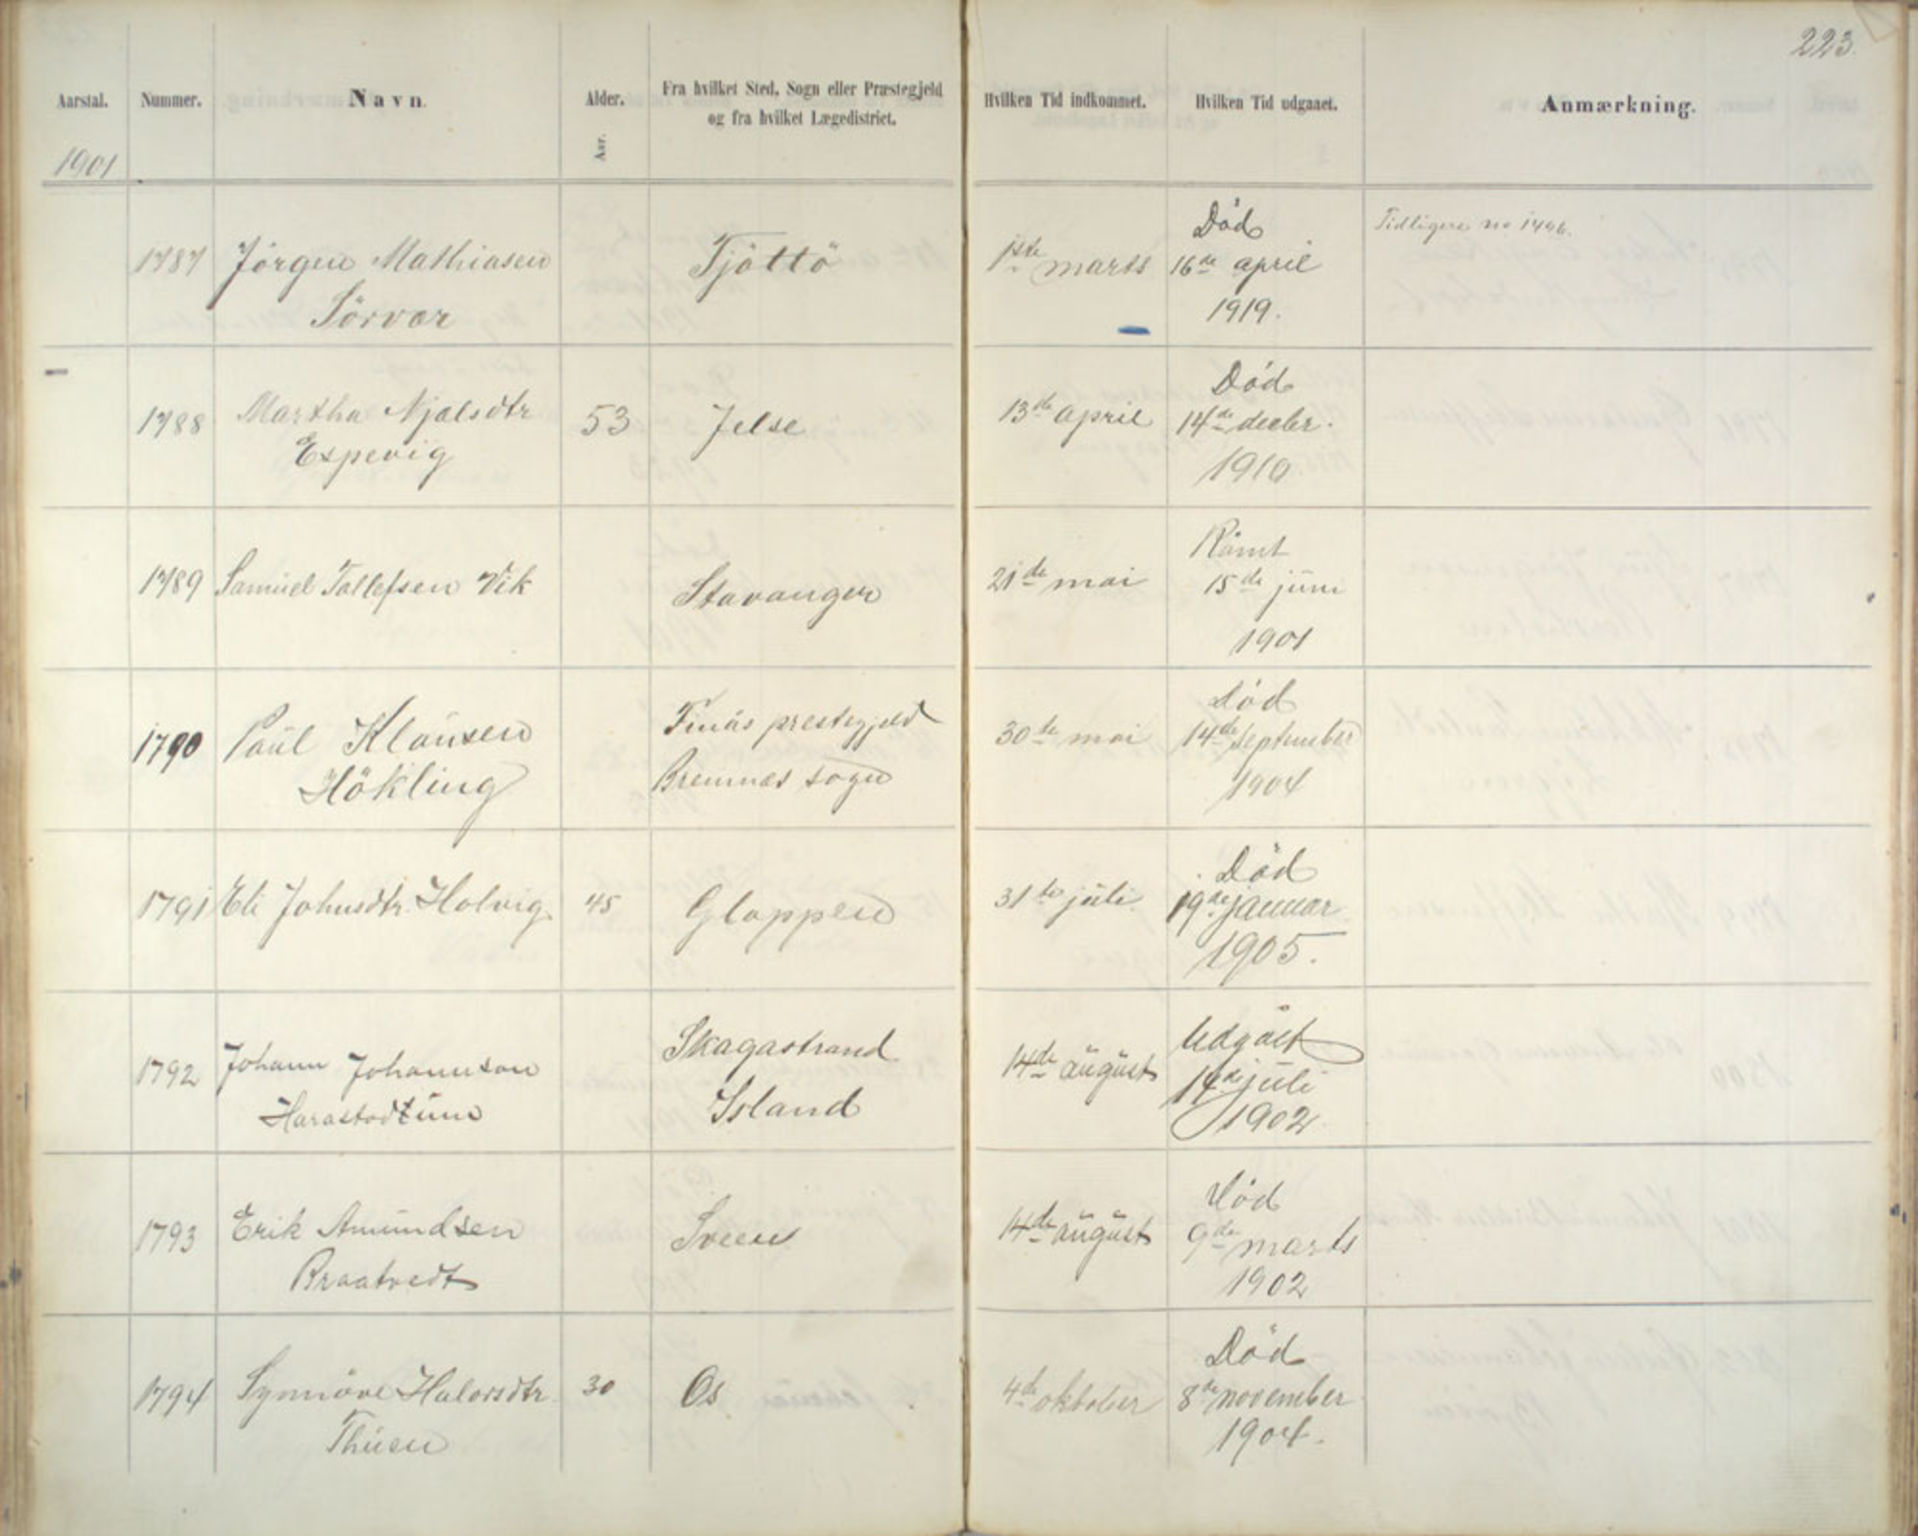 223.
Aarstal. Nummer. Navn. Alder. Fra hvilket Sted, Sogn eller Præstegjeld Hvilken Tid indkommet. Hvilken Tid udgaaet. Anmærkning.
og fra hvilket Lægedistrict.
Aar.
1901
Død Tidligere no 1466.
1787 Jörgen Mathiasen Tjöttö 1ste marts 16de april
Sörvar 1919.
Död
1788 Martha Njalsdtr 53 Jelse 13de april 14de decbr.
Espevig 1910
Römt
1789 Samuel Tollefsen Vik Stavanger 21de mai 15de juni
1901
död
1790 Paul Klausen Finås prestegjeld 30te mai 14de september
Hökling Bremnes sogn 1904
Död
1791 Eli Johnsdtr. Holvig 45 Gloppen 31te juli 19de januar
1905.
Skagastrand Udgået
1792 Johann Johannson 14de august 14de juli
Harastadtum Island 1902
Död
1793 Erik Amundsen Sveen 14de august 9de marts
Braatvedt 1902
Död
1794 Synnöve Halorsdtr 30 Os 4de oktober 8de november
Thuen 1904.